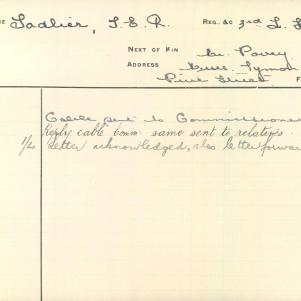 Sadlier, T. E. R. REG. &c 3rd L. H
NEXT OF KIN Mr. Povey
ADDRESS
Pirie Street
Cable sent to Commissioner
Reply cable Comm. same sent to relatives
1/4 Letter acknowledged, also letter forwar